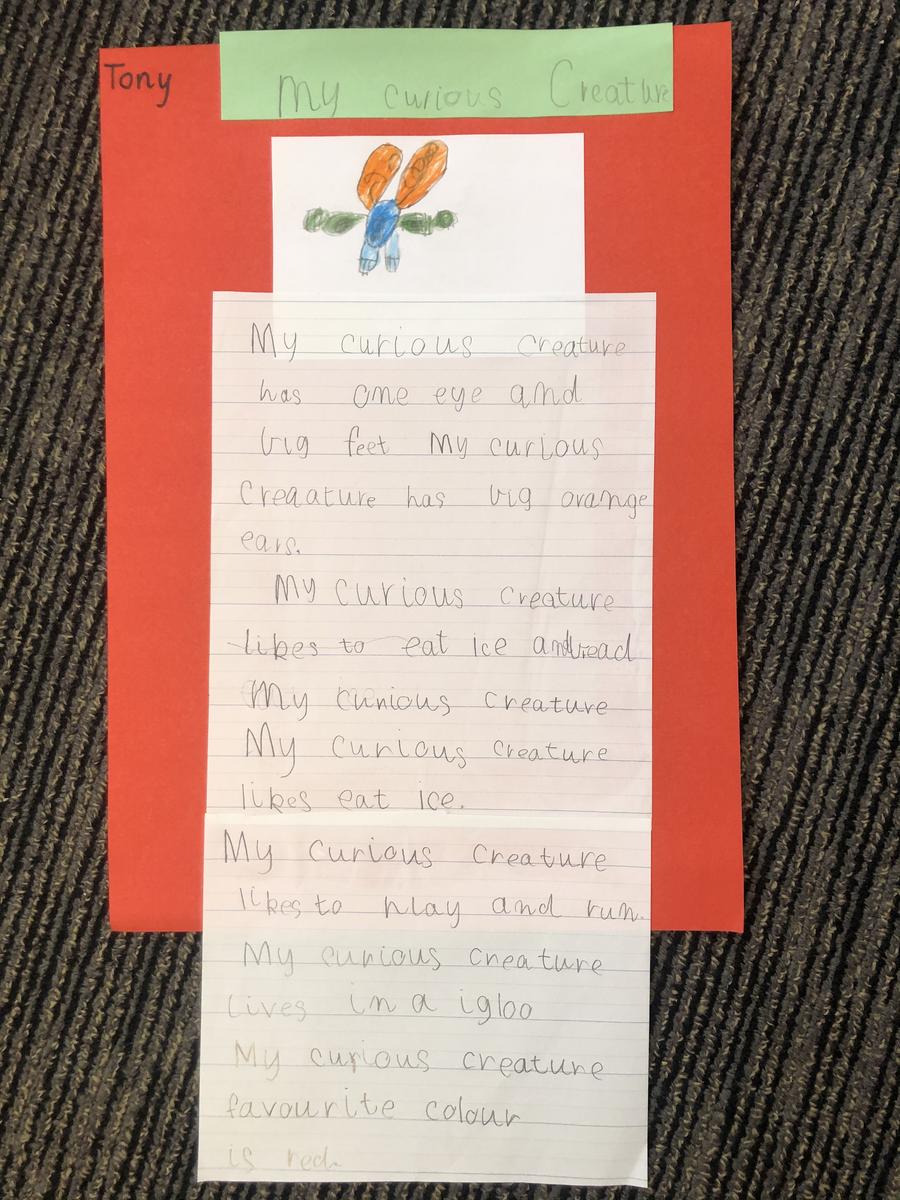 Tony
My curious Creature
My curious creature
has one eye and
big feet My curious
Creaature has big orange
ears.
My curious creature
likes to eat ice andbread
My curious creature
My curious creature
likes eat ice.
My curious creature
likes to play and run.
My curious creature
lives in a igloo
My curious creature
favourite colour
is red.